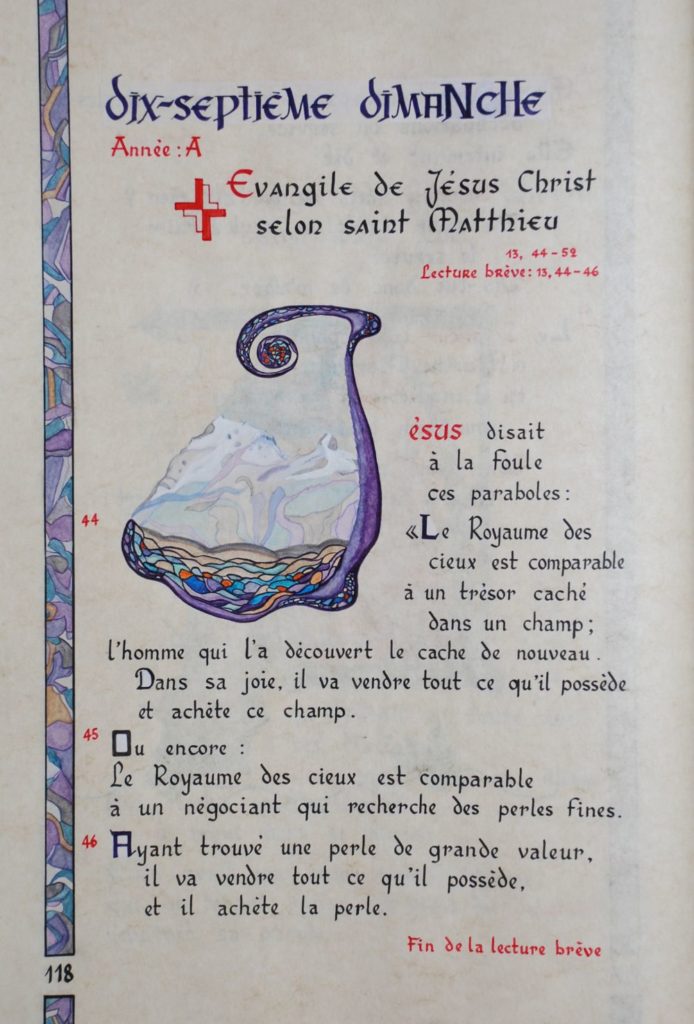 Dix-septième dimanche
Année : A
Evangile de Jésus Christ
selon saint Matthieu
13, 44-52
Lecture brève : 13, 44-46
Jésus disait
à la foule
ces paraboles :
44
«Le Royaume des
cieux est comparable
à un trésor caché
dans un champ ;
l'homme qui l'a découvert le cache de nouveau.
Dans sa joie, il va vendre tout ce qu'il possède
et achète ce champ.
45
Ou encore :
Le Royaume des cieux est comparable
à un négociant qui recherche des perles fines.
46
Ayant trouvé une perle de grande valeur,
il va vendre tout ce qu'il possède,
et il achète la perle.
Fin de la lecture brève
118